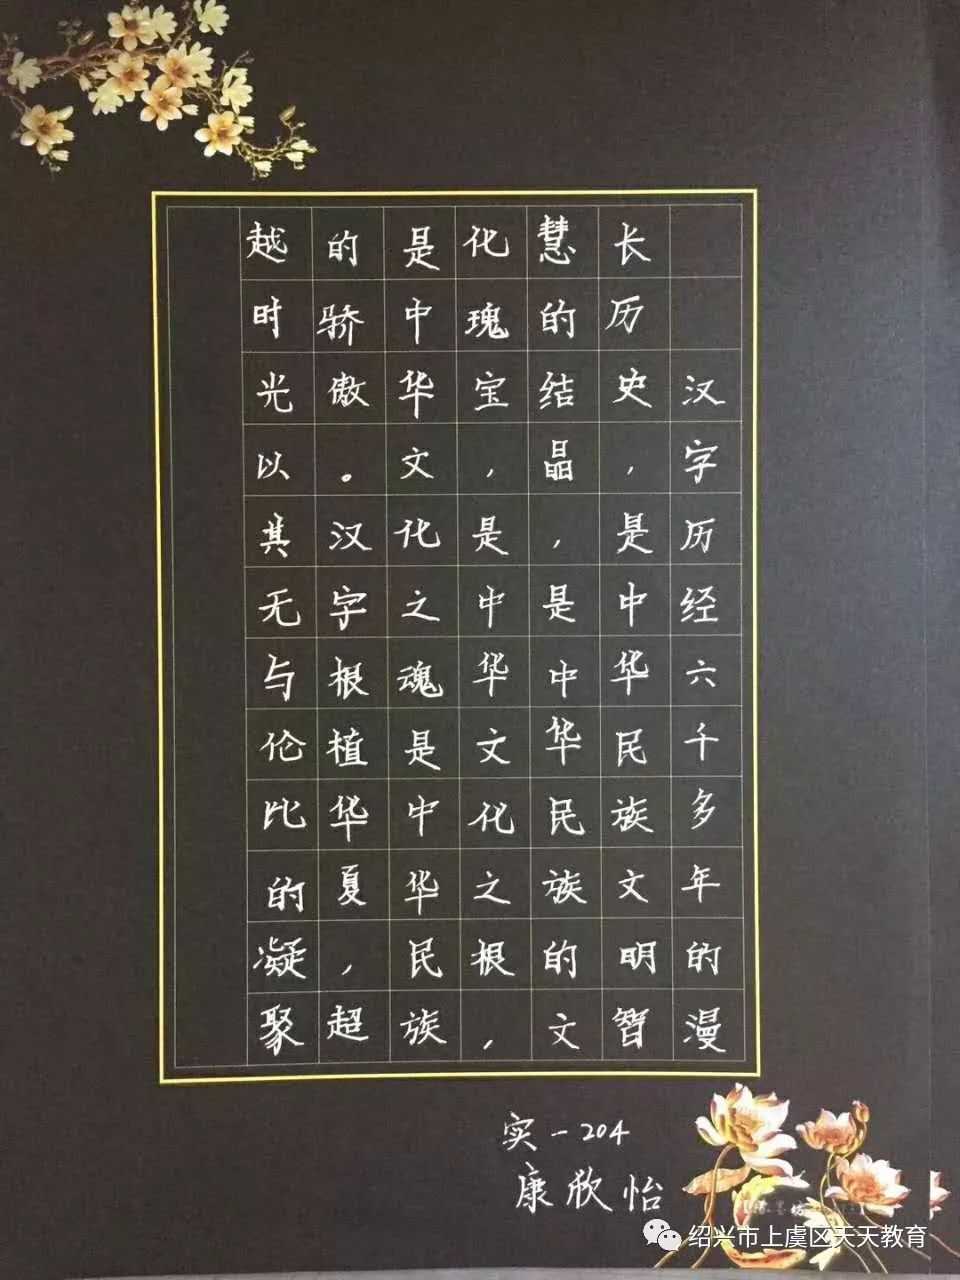 汉字历经六千多年的漫
长历史，是中华民族文明智
慧的结晶，是中华民族的文
化瑰宝，是中华文化之根，
是中华文化之魂是中华民族
的骄傲。汉字根植华夏，超
越时光以其无与伦比的凝聚
实一204
康欣怡
绍兴市上虞区天天教育